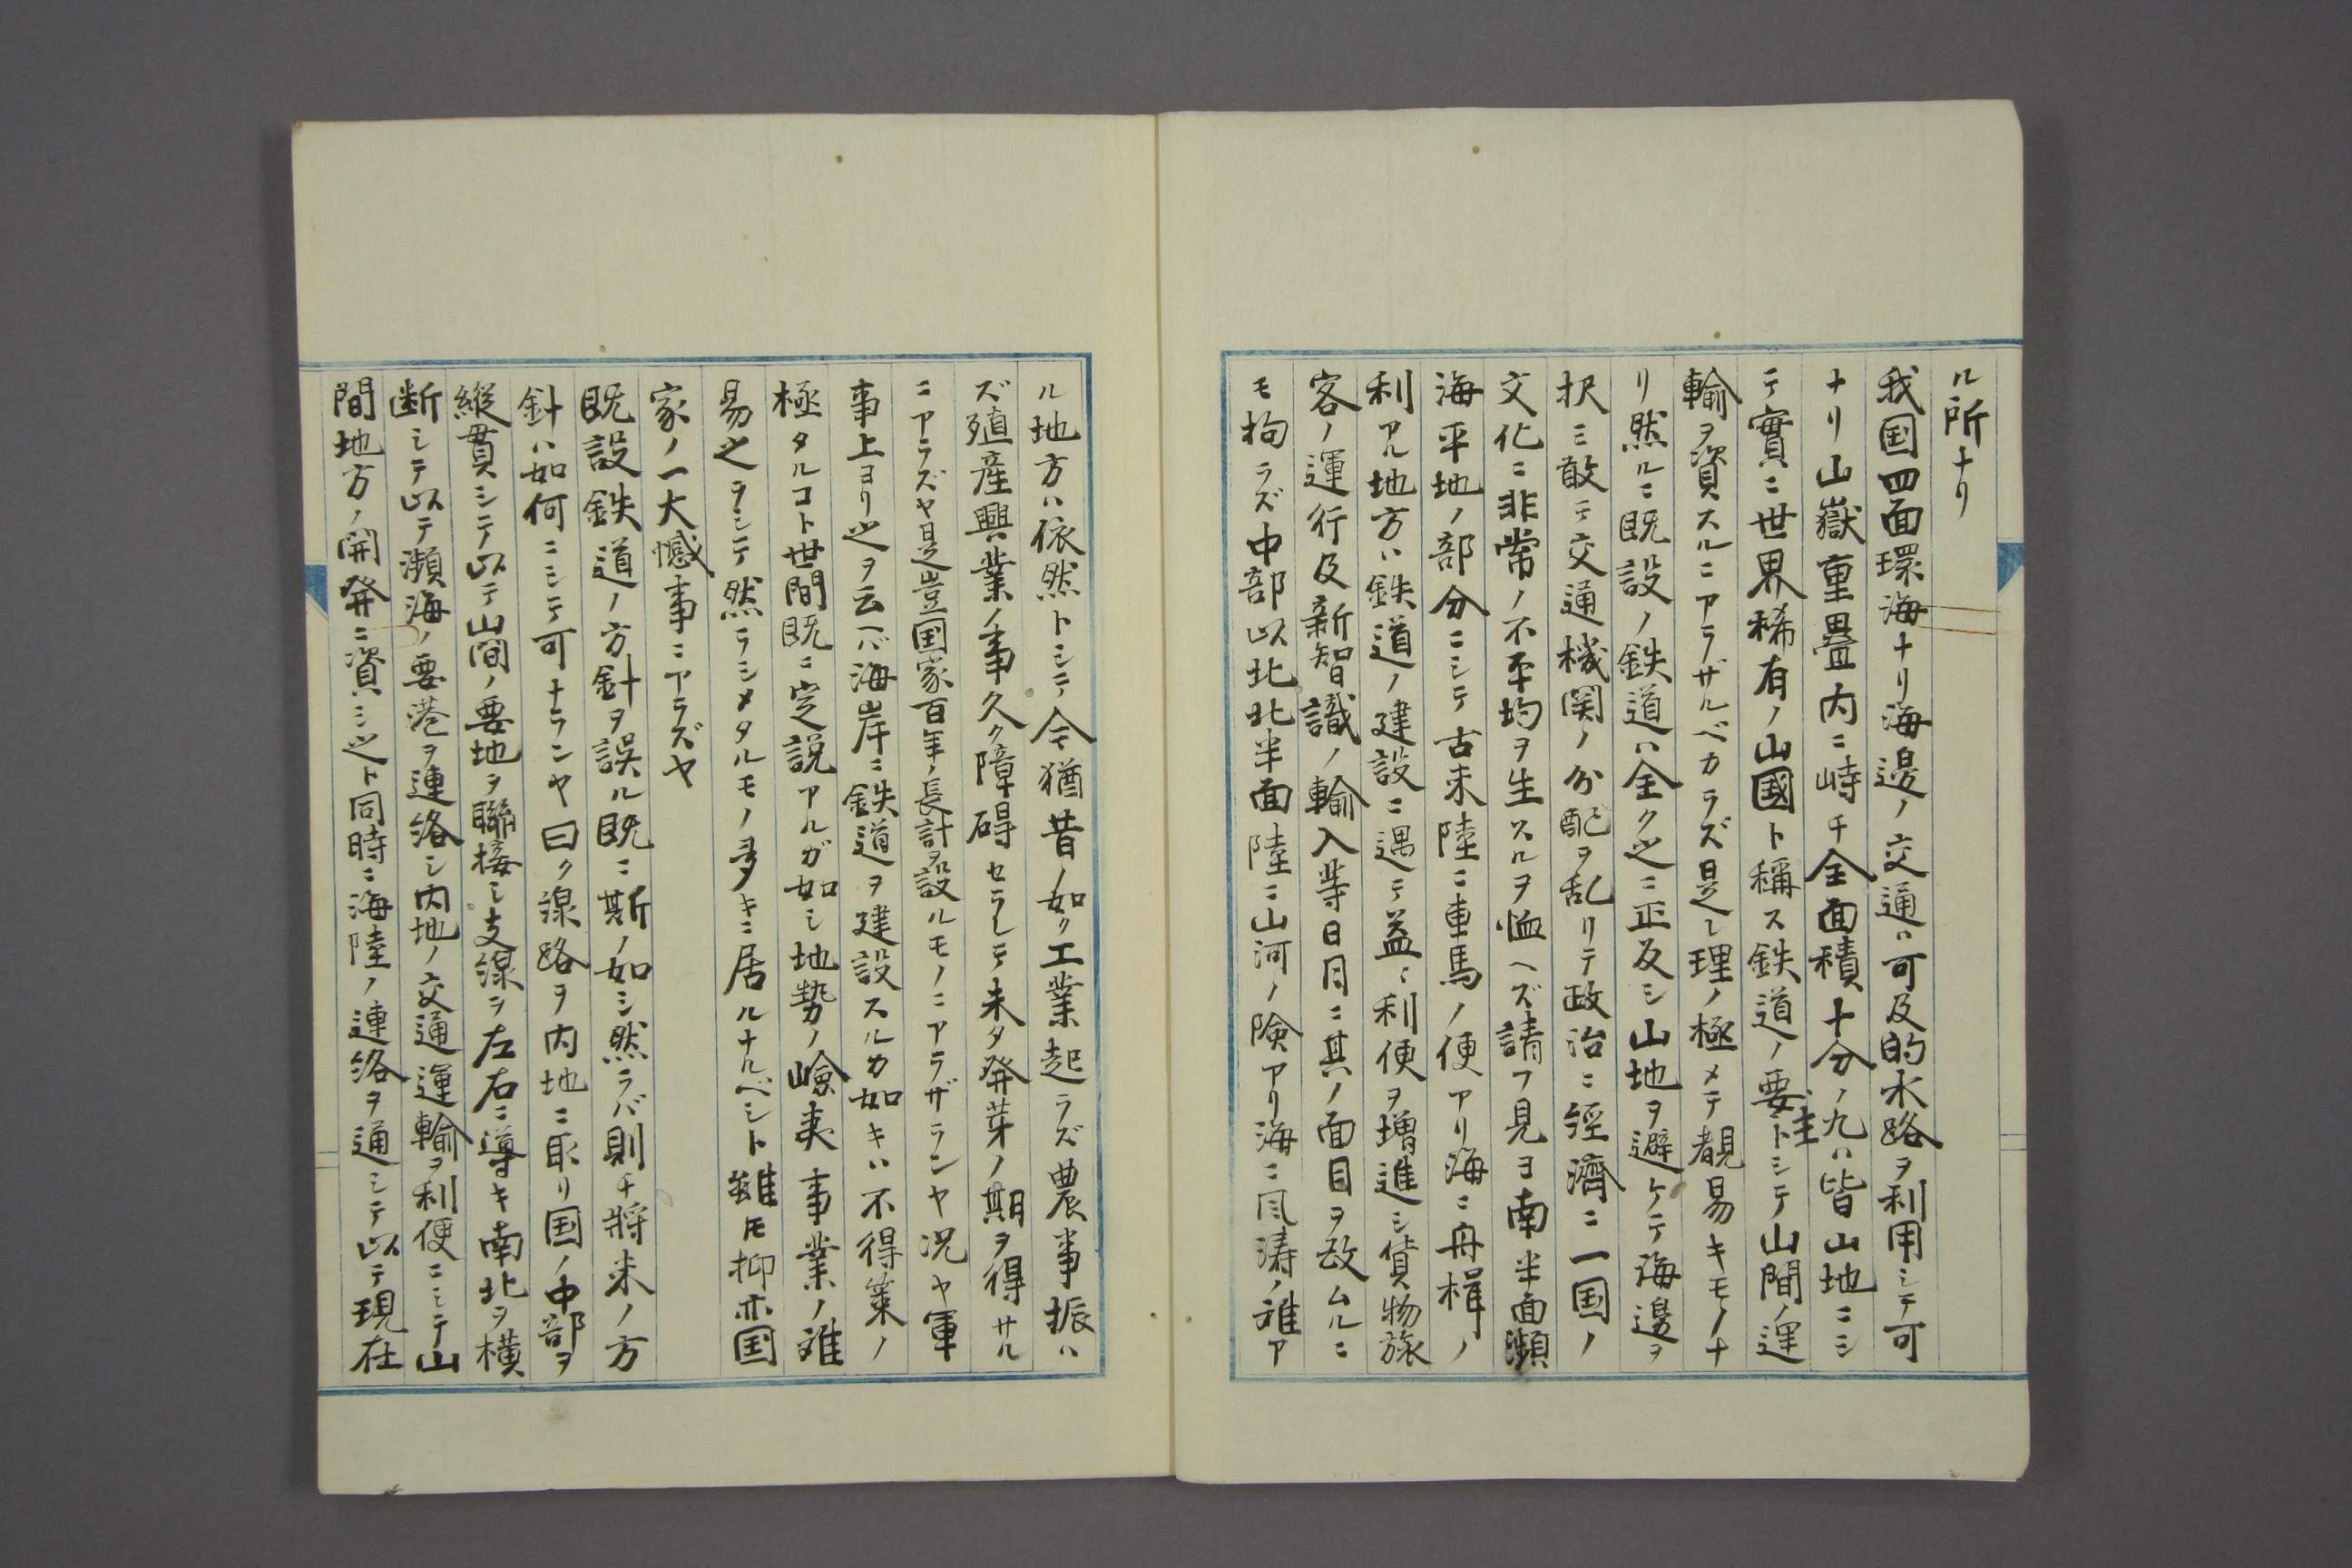 ル所ナリ
我国四面環海ナリ海邊ノ交通ハ可及的水路ヲ利用シテ可
ナリ山嶽重畳内ニ峙チ全面積十分ノ九ハ皆山地ニシ
テ實ニ世界稀有ノ山國ト稱ス鉄道ノ要主トシテ山間ノ運
輸ヲ資スルニアラザルベカラズ是レ理ノ極メテ覩易キモノナ
リ然ルニ既設ノ鉄道ハ全ク之ニ正反シ山地ヲ避ケテ海邊ヲ
択ミ敢テ交通機関ノ分配ヲ乱リテ政治ニ經濟ニ一国ノ
文化ニ非常ノ不平均ヲ生スルヲ恤ヘズ請フ見ヨ南半面瀕
海平地ノ部分ニシテ古来陸ニ車馬ノ便アリ海ニ舟楫ノ
利アル地方ハ鉄道ノ建設ニ遇テ益〻利便ヲ増進シ貨物旅
客ノ運行及新智識ノ輸入等日月ニ其ノ面目ヲ改ムルニ
モ拘ラズ中部以北北半面陸ニ山河ノ険アリ海ニ風涛ノ難ア
ル地方ハ依然トシテ今猶昔ノ如ク工業起ラズ農事振ハ
ズ殖産興業ノ事久ク障碍セラレテ未タ発芽ノ期ヲ得サル
ニアラズヤ是豈国家百年ノ長計ヲ設ルモノニアラザランヤ况ヤ軍
事上ヨリ之ヲ云ヘバ海岸ニ鉄道ヲ建設スルカ如キハ不得策ノ
極タルコト世間既ニ定説アルガ如シ地勢ノ嶮夷事業ノ難
易之ヲシテ然ラシメタルモノ多キニ居ルナルベシト雖モ抑亦国
家ノ一大憾事ニアラズヤ
既設鉄道ノ方針ヲ誤ル既ニ斯ノ如シ然ラバ則チ將来ノ方
針ハ如何ニシテ可ナランヤ曰ク線路ヲ内地ニ取リ国ノ中部ヲ
縦貫シテ以テ山間ノ要地ヲ聯接シ支線ヲ左右ニ導キ南北ヲ横
断シテ以テ瀕海ノ要港ヲ連絡シ内地ノ交通運輸ヲ利便ニシテ山
間地方ノ開発ニ資シ之ト同時ニ海陸ノ連絡ヲ通シテ以テ現在